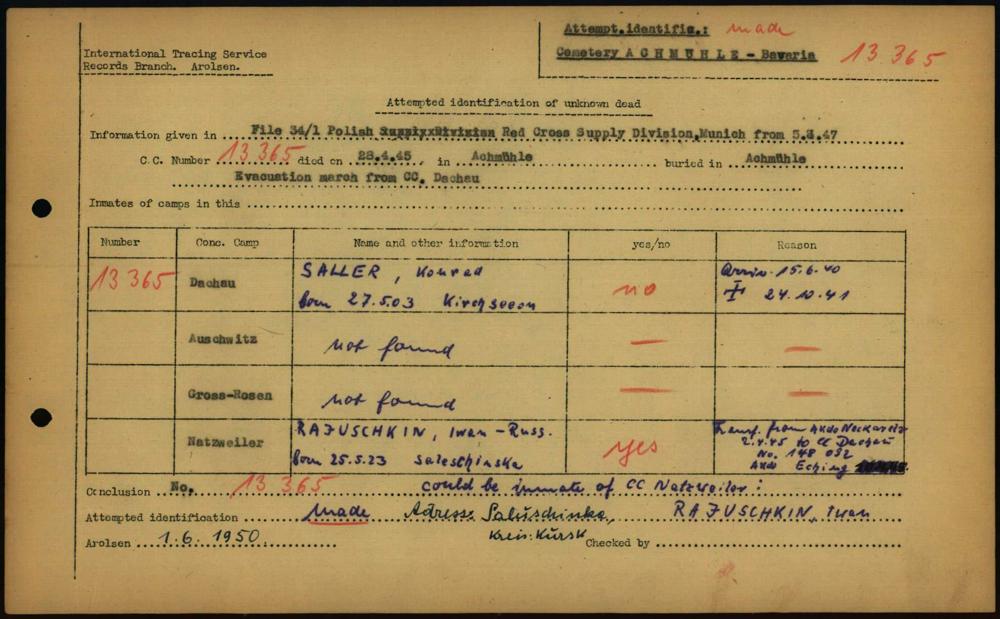 Attempt.identific.: made
Cemetery A C H M Ü H L E - Bavaria 13 365
International Tracing Service
Records Branch. Arolsen.
Attempted identification of unknown dead
Information given in File 34/1 Polish Red Cross Supply Division, Munich from 5.3.47
C.C. Number 13 365 died on 28.4.45, in Achmühle buried in Achmühle
Evacuation march from CC. Dachau
Inmates of camps in this
Number Conc. Camp Name and other information yes/no Reason
13 365 Dachau SALLER, Konrad no Arriv. 15.6.40
born 27.5.03 Kirchseeon 24.10.41
Auschwitz not found — —
Gross-Rosen not found — —
Natzweiler RAJUSCHKIN, Iwan - Russ. yes Transf. from AKdo Neckarelz
born 25.5.23 2.4.45 to CC Dachau
No. 148 032
AKdo Eching
Conclusion No. 13 365 could be inmate of CC Natzweiler:
Attempted identification made Adresse RAJUSCHKIN, Iwan
Arolsen 1.6.1950 Kreis: Kursk Checked by